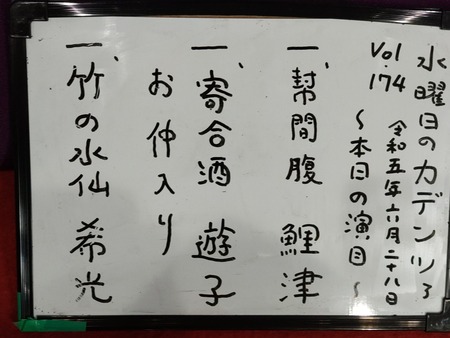 水曜日のカデンツァ
Vol.174 令和五年六月二十八日
〜本日の演目〜
一、幇間腹 鯉津
一、寄合酒 遊子
お仲入り
一、竹の水仙 希光